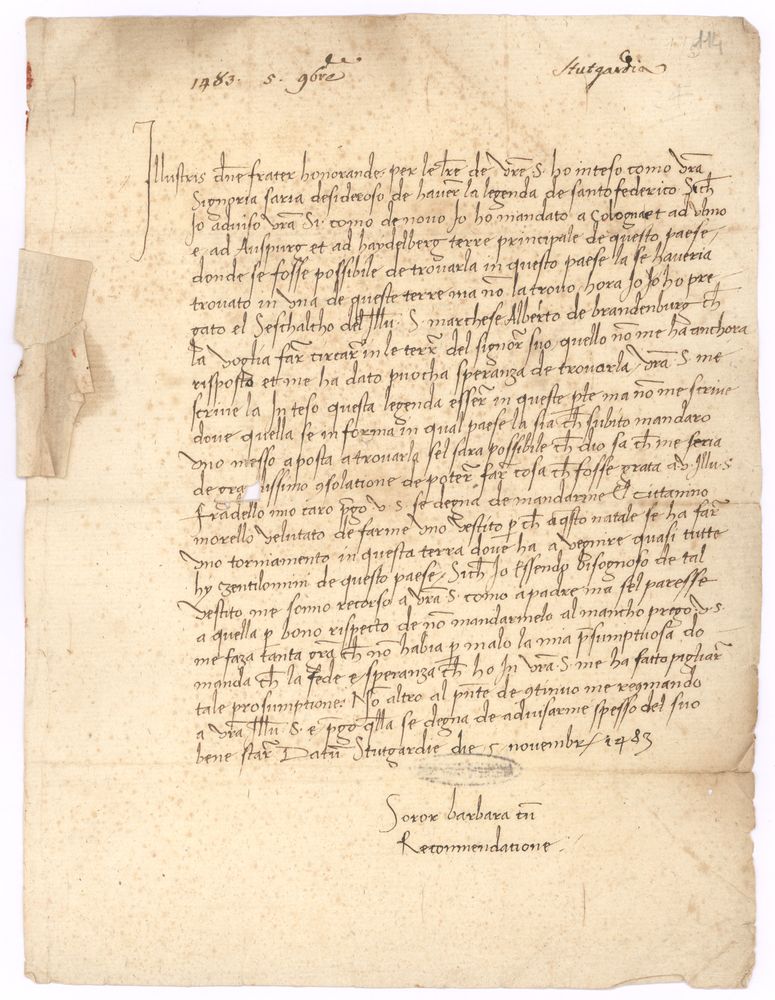 114
1483. 5. 9bre
Stutgardia
Illustris dne frater honorande, per le lre de vre S. ho inteso como vra
Signoria saria desideroso de haver la legenda de santo federico Sich
Io adviso vra Si. como de novo Io ho mandato a Cologna et ad Vlmo
e ad Auspurg et ad haydelberg terre principale de questo paese,
donde se fosse possibile de trovarla in questo paese la se haveria
trovato in vna de queste terre ma nō la trovo, hora Io Io ho pre
gato el Seschalcho del Illu. S. marchese Alberto de brandenburg ch
la voglia far circar in le terr del signor suo, quello nō me ha anchora
risposto et me ha dato puocha speranza de trovarla, vra S. me
scrive la In teso questa legenda esser in queste pte ma nō me scrive
dove quella se informa in qual paese la sia ch subito mandaro
vno messo a posta a trovarla sel sara possibile ch dio sa ch me seria
de gra issimo 9solatione de poter far cosa ch fosse grata a v. Illu. S
fradello mio caro pgo v. s. se degna de mandarme
morello velutato de farme vno vestito p ch a qsto natale se ha far
vno torniamento in questa terra dove ha a vegnire quasi tutte
hy zentilomini de questo paese, Sich Io Essendo bisognoso de tal
vestito me sonno recorso a vra S. como a padre ma sel paresse
a quella p bono rispecto de nō mandarmelo al mancho prego v. s.
me faza tanta gra ch nō habia p malo la mia psumptuosa do
manda ch la fede e speranza ch ho In vra S. me ha fatto pigliar
tale prosumptione. Nō altro al pnte de 9tinuo me recomando
a vra Illu. S. e pgo qlla se degna de advisarme spesso del suo
bene star Datū Stutgardie die 5 novembr 1483
Soror barbara cū
Recommendatione